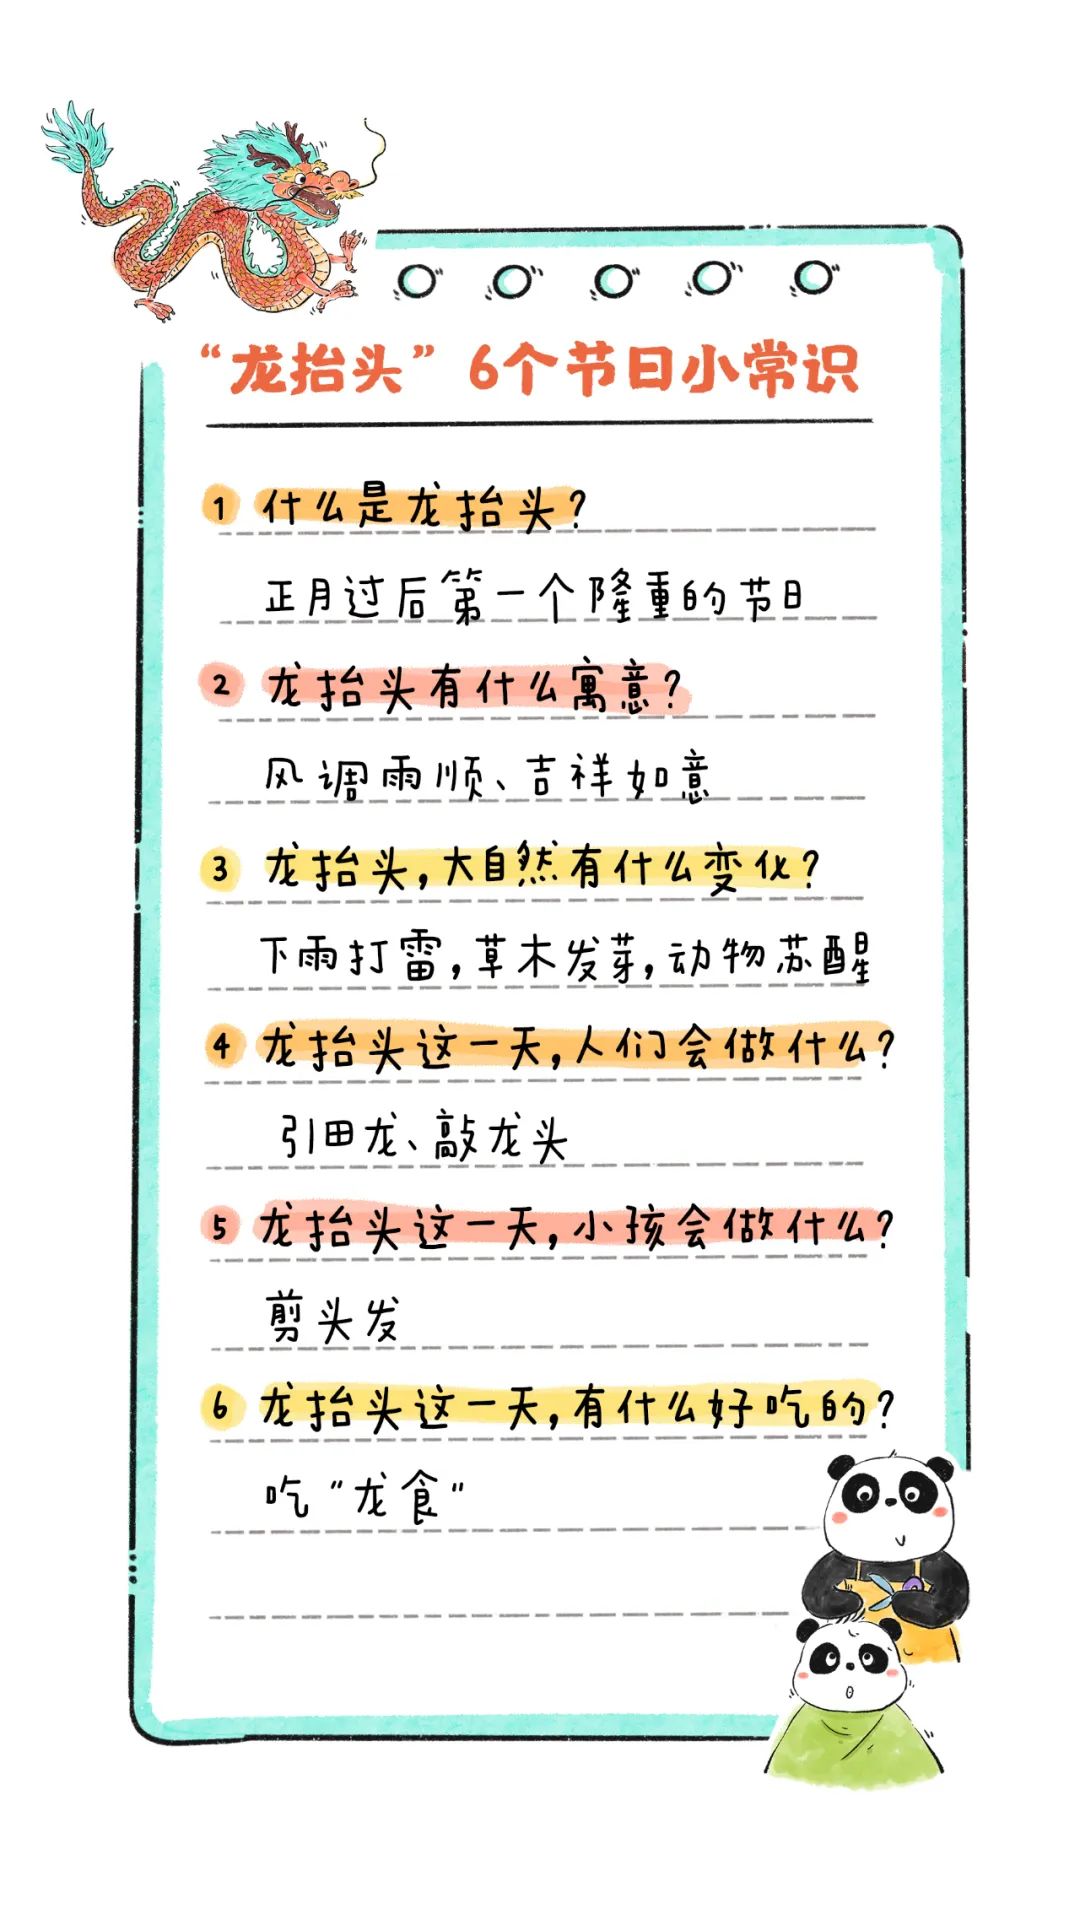 “龙抬头”6个节日小常识
1 什么是龙抬头?
正月过后第一个隆重的节日
2 龙抬头有什么寓意?
风调雨顺、吉祥如意
3 龙抬头,大自然有什么变化?
下雨打雷,草木发芽,动物苏醒
4 龙抬头这一天,人们会做什么?
引田龙、敲龙头
5 龙抬头这一天,小孩会做什么?
剪头发
6 龙抬头这一天,有什么好吃的?
吃"龙食"